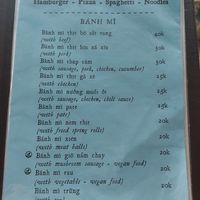 Hamburger - Pizza - Spaghetti - Noodles
BÁNH MÌ
Bánh mì thịt bò sốt vang 40k
(with beef)
Bánh mì thịt lợn xá xíu 30k
(with pork)
Bánh mì thập cẩm 30k
(with sausage, pork, chicken, cucumber)
Bánh mì thịt gà xé 25k
(with chicken)
Bánh mì nướng muối ớt 25k
(with sausage, chicken, chili sauce)
Bánh mì pate 25k
(with pate)
Bánh mì nem thịt 20k
(with fried spring rolls)
Bánh mì xíu 20k
(with meat balls)
Bánh mì giò nấm chay 20k
(with mushroom sausage - vegan food)
Bánh mì rau 20k
(with vegetable - vegan food)
Bánh mì trứng 20k